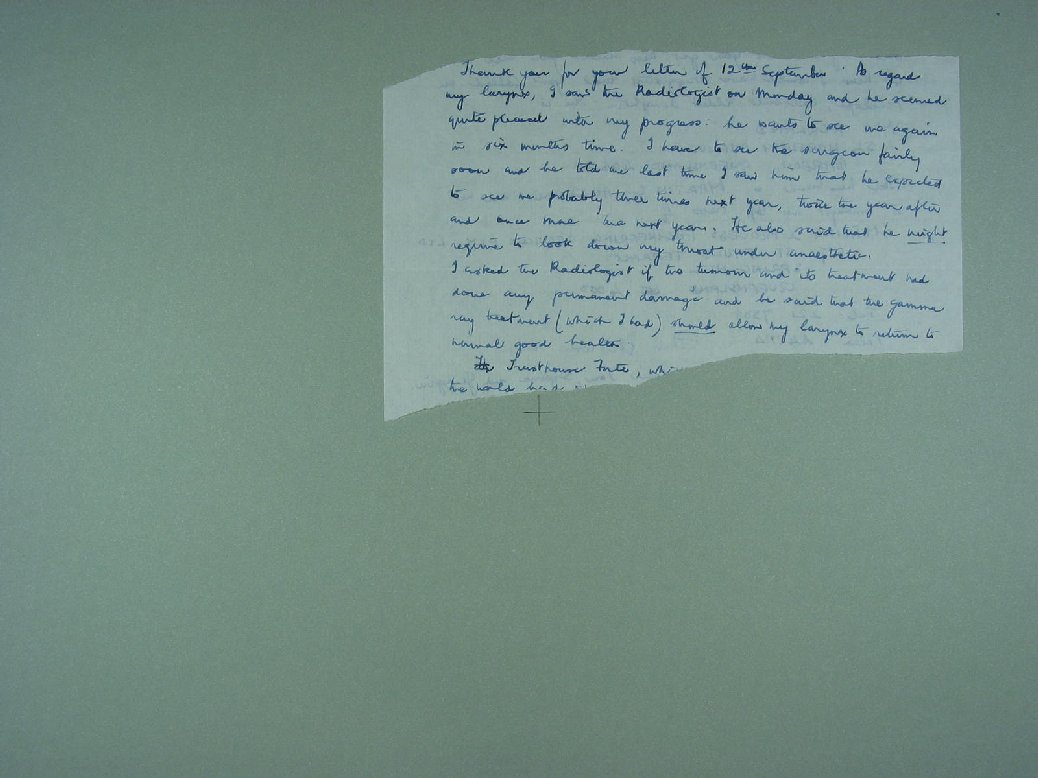 Thank you for your letter of 12th September. As regard
my larynx, I saw the Radiologist on Monday and he seemed
quite pleased with my progress. he wants to see me again
in six months time. I have to see the surgeon fairly
soon and he told me last time I saw him that he expected
to see me probably three times next year, twice the year after
and once more the next year. He also said that he might
require to look down my throat under anaesthetic.
I asked the Radiologist if the tumour and its treatment had
done any permanent damage and he said that the gamma
ray treatment (which I had) should allow my larynx to return to
normal good health
Trusthouse Forte,
the world